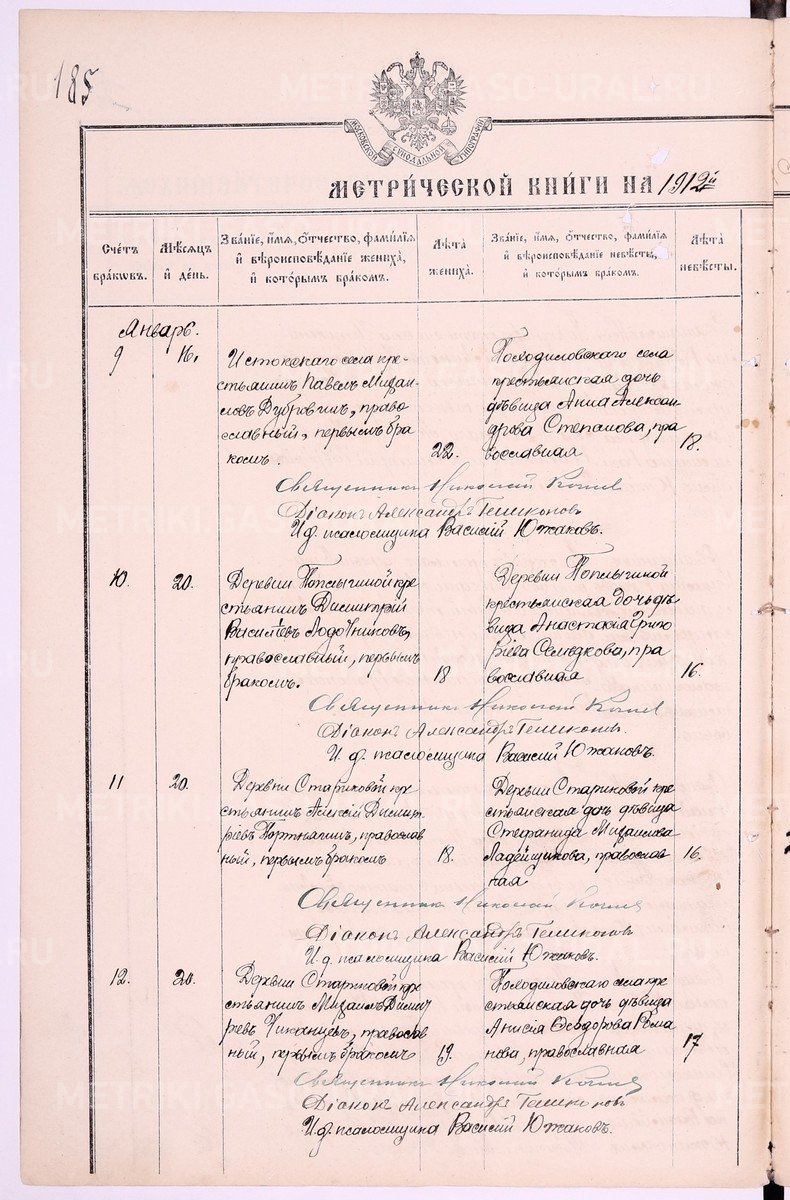 185
МОСКОВСКОЙ СѴНОДАЛЬНОЙ ТИПОГРАФІИ
МЕТРИЧЕСКОЙ КНИГИ НА 1912й
Счетъ браковъ.
Мѣсяцъ и день.
Званіе, имя, отчество, фамилія и вѣроисповѣданіе жениха, и которымъ бракомъ.
Лѣта жениха.
Званіе, имя, отчество, фамилія и вѣроисповѣданіе невѣсты, и которымъ бракомъ.
Лѣта невѣсты.
Январь.
9
16.
Истокскаго села кре-
стьянинъ Павелъ Михаи-
ловъ Дубровинъ, право
славный, первымъ бра
комъ.
22.
Походиловскаго села
крестьянская дочь
дѣвица Анна Алексан
дрова Степанова, пра
вославная
18.
Священникъ Николай
Діаконъ Александръ
И.д. псаломщика Василій Южаковъ.
10.
20.
Деревни кре
стьянинъ Димитрій
Васильевъ Лодочниковъ,
православный, первымъ
бракомъ.
18
Деревни
крестьянская дочь дѣ
вица Анастасія Григо
ріева Селедкова, пра
вославная
16.
Священникъ Николай
Діаконъ Александръ
И.д. псаломщика Василій Южаковъ.
11
20.
Деревни Стариковой кре
стьянинъ Алексій Димит
ріевъ Портнягинъ, православ
ный, первымъ бракомъ
18.
Деревни Стариковой кре
стьянская дочь дѣвица
Стефанида Михаилова
Ладейщикова, православ
ная
16.
Священникъ Николай
Діаконъ Александръ
И.д. псаломщика Василій Южаковъ.
12.
20.
Деревни Стариковой кре
стьянинъ Михаилъ Димит
ріевъ Чиканцевъ, православ
ный, первымъ бракомъ
19.
Походиловскаго села кре
стьянская дочь дѣвица
Анисія Ѳеодорова Рома
нова, православная
17
Священникъ Николай
Діаконъ Александръ
И.д. псаломщика Василій Южаковъ.